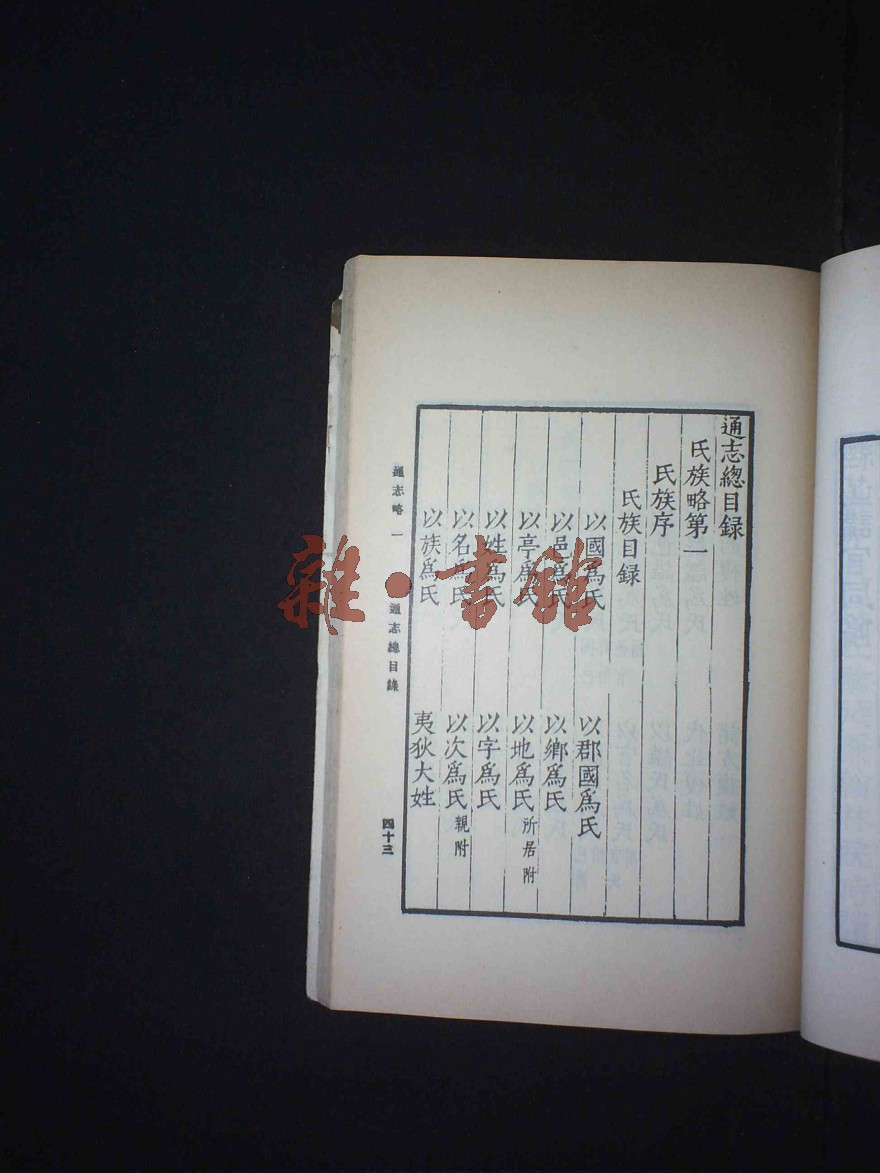 通志總目录
氏族略第一
氏族序
氏族目録
以國爲氏 以郡國爲氏
以邑爲氏 以鄉爲氏
以亭爲氏 以地爲氏 所居附
以姓爲氏 以字爲氏
以名爲氏 以次爲氏 親附
以族爲氏 夷狄大姓
通志略 一 通志總目錄 四十三
雜·書館